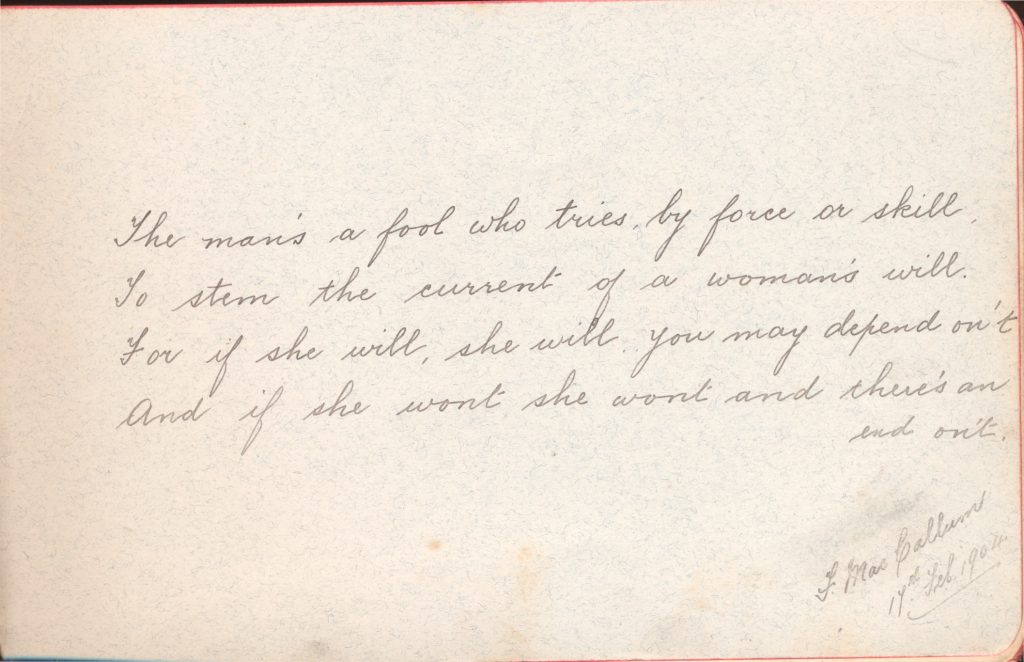 The man's a fool who tries, by force or skill,
To stem the current of a woman's will.
For if she will, she will, you may depend on't
And if she wont she wont and there's an
end on't.
F. MacCallum
17th Feb. 1904